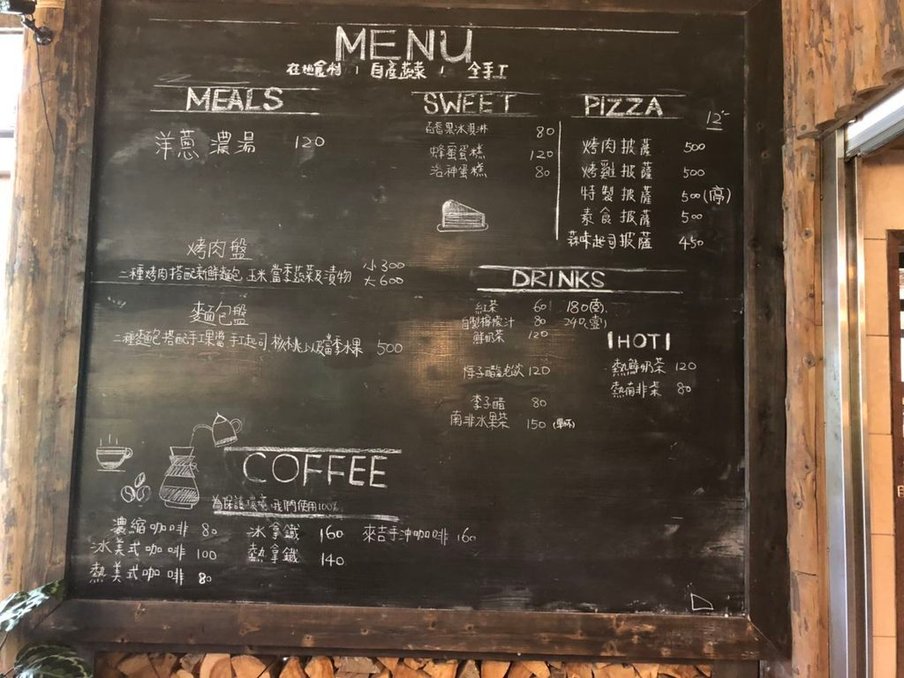 MENU
在地食材 / 自產蔬菜 / 全手工
MEALS
洋蔥濃湯 120
烤肉盤
二種烤肉搭配新鮮麵包 玉米 當季蔬菜及漬物 小300 大600
麵包盤
二種麵包搭配手工果醬 手工起司 核桃以及當季水果 500
SWEET
百香果冰淇淋 80
蜂蜜蛋糕 120
洛神蛋糕 80
PIZZA
12"
烤肉披薩 500
烤雞披薩 500
特製披薩 500(停)
素食披薩 500
蒜味起司披薩 450
DRINKS
紅茶 60 180(壺)
自製檸檬汁 80 240(壺)
鮮奶茶 120
梅子醋氣泡飲 120
李子醋 80
南非水果茶 150
HOT
熱鮮奶茶 120
熱南非茶 80
COFFEE
為保護環境,我們使用100%
濃縮咖啡 80
冰美式咖啡 100
熱美式咖啡 80
冰拿鐵 160
熱拿鐵 140
來吉手沖咖啡 160